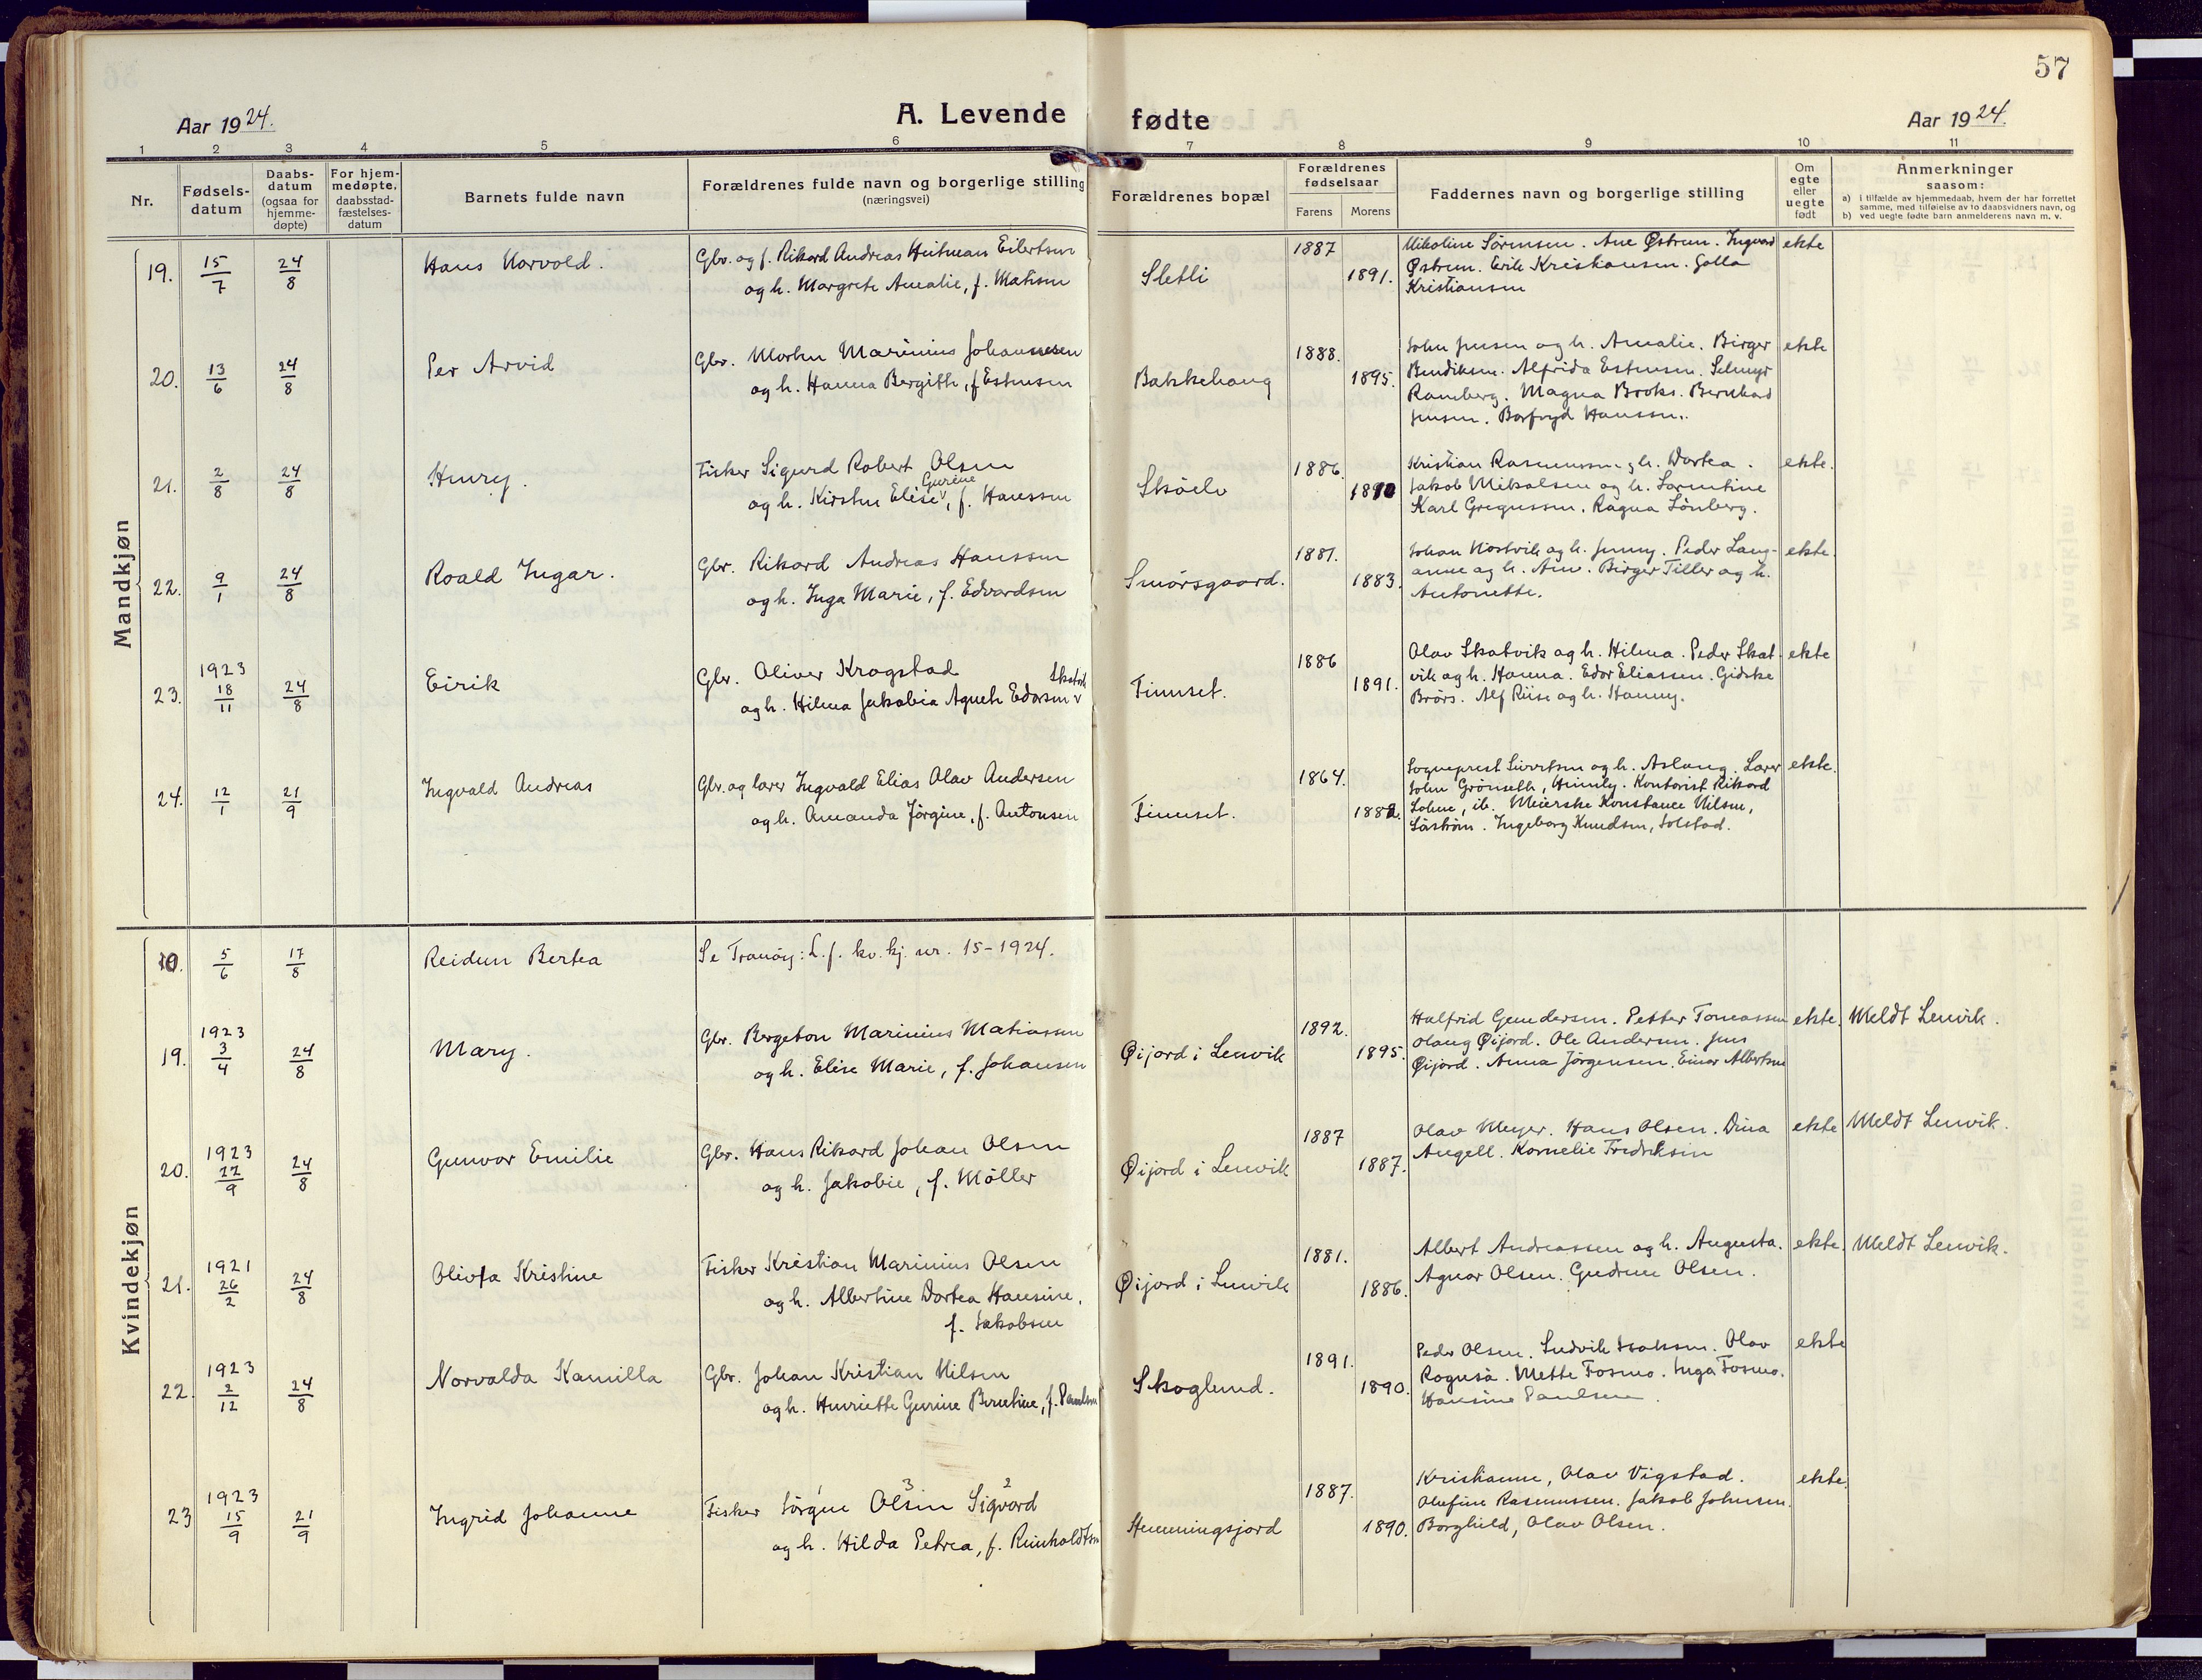 57
Aar 1924.
A. Levende fødte
Aar 1924.
1 2 3 4 5 6 7 8 9 10 11
Nr.
Fødsels-
datum
Daabs-
datum
(ogsaa for
hjemme-
døpte)
For hjem-
medøpte,
daabsstad-
fæstelses-
datum
Barnets fulde navn
Forældrenes fulde navn og borgerlige stilling
(næringsvei)
Forældrenes bopæl
Forældrenes
fødselsaar
Farens Morens
Faddernes navn og borgerlige stilling
Om
egte
eller
uegte
født
Anmerkninger
saasom:
a) i tilfælde av hjemmedaab, hvem der har forrettet
samme, med tilføielse av to daabsvidners navn, og
b) ved uegte fødte barn anmelderens navn m. v.
Mandkjøn
19. 15/7 24/8 Hans Norvold.
Gbr. og f. Rikard Andreas Heitman Eilertsen
og h. Margrete Amalie, f. Matisen
Sletli
1887
1891.
Nikoline Sörensen. Ane Østrem. Ingvard
Østrem. Erik Kristiansen. Golla
Kristiansen
ekte
20. 13/6 24/8 Per Arvid
Gbr. Morten Marinius Johannesen
og h. Hanna Bergith, f Estensen
Bakkehaug
1888.
1895.
John Jensen og h. Amalie. Birger
Bendiksen. Alfrida Estensen. Selmyr
Ramberg. Magna Broks. Bernhard
Jensen. Borfryd Hanssen.
ekte
21. 2/8 24/8 Henry.
Fisker Sigurd Robert Olsen
Gurine
og h. Kirsten Elise, f. Hanssen
Sköelv
1886
1890
Kristian Rasmussen og h. Dortea.
Jakob Mikalsen og h. Sarentine
Karl Gregussen. Ragna Lönberg.
ekte.
22. 9/1 24/8 Roald Ingar.
Gbr. Rikard Andreas Hanssen
og h. Inga Marie, f. Edvardsen
Smörsgaard.
1881.
1883.
Johan Nostvik og h. Jenny. Peder Lang-
anne og h. Ane. Birger Tiller og h.
Antonette.
ekte.
23. 1923 18/11 24/8 Eirik
Gbr. Oliver Krogstad
Skatvik
og h. Hilma Jakobia Agneth Edorsen
Finnset.
1886
1891.
Olav Skatvik og h. Hilma. Peder Skat-
vik og h. Hanna. Edor Eliassen. Gidske
Brörs. Alf Riise og h. Hanny.
ekte
24. 12/1 21/9 Ingvald Andreas
Gbr. og lærer Ingvald Elias Olav Andersen
og h. Amanda Jörgine, f. Antonsen
Finnset.
1864.
1882.
Sogneprest Sivertsen og h. Aslaug. Lærer
John Grönseth, Heimly. Kontorist Rikard
Lohne, ib. Meierske Konstance Nilsen,
Såström. Ingeborg Knudsen, Solstad.
ekte.
Kvindekjøn
10. 5/6 17/8 Reidun Bertea
Se Tranöy: L. f. kv. kj. nr. 15-1924.
19. 1923 3/4 24/8 Mary.
Gbr. Bergeton Marinius Matiassen
og h. Elise Marie, f. Johansen
Øijord i Lenvik
1892.
1895.
Halfrid Gundersen. Petter Tomassen
Olaug Øijord. Ole Andersen. Jens
Øijord. Anna Jörgensen. Einar Albertsen
ekte.
Meldt Lenvik.
20. 1923 22/9 24/8 Gunvor Emilie
Gbr. Hans Rikard Johan Olsen
og h. Jakobie, f. Möller
Øijord i Lenvik
1887
1887.
Olav Meyer. Hans Olsen. Dina
Angell. Kornelie Fredriksen
ekte
Meldt Lenvik.
21. 1921 26/2 24/8 Olivfa Kristine
Fisker Kristian Marinius Olsen
og h. Albertine Dortea Hansine,
f. Jakobsen
Øijord i Lenvik
1881.
1886.
Albert Andreassen og h. Augusta.
Agnar Olsen. Gudrun Olsen.
ekte.
Meldt Lenvik.
22. 1923 2/12 24/8 Norvalda Kamilla
Gbr. Johan Kristian Nilsen
og h. Henriette Gurine Berntine, f. Paulsen
Skoglund.
1891.
1890.
Peder Olsen. Ludvik Isaksen. Olav
Rognså. Mette Fosmo. Inga Fosmo.
Hansine Paulsen.
ekte
23 1923 15/9 21/9 Ingrid Johanne
3 2
Fisker Jörgen Olsen Sigvard
og h. Hilda Petrea, f. Reinholdtsen
Hemmingsjord
1887.
1890.
Kristianne, Olav Vigstad.
Olufine Rasmussen. Jakob Johnsen.
Borghild, Olav Olsen.
ekte.